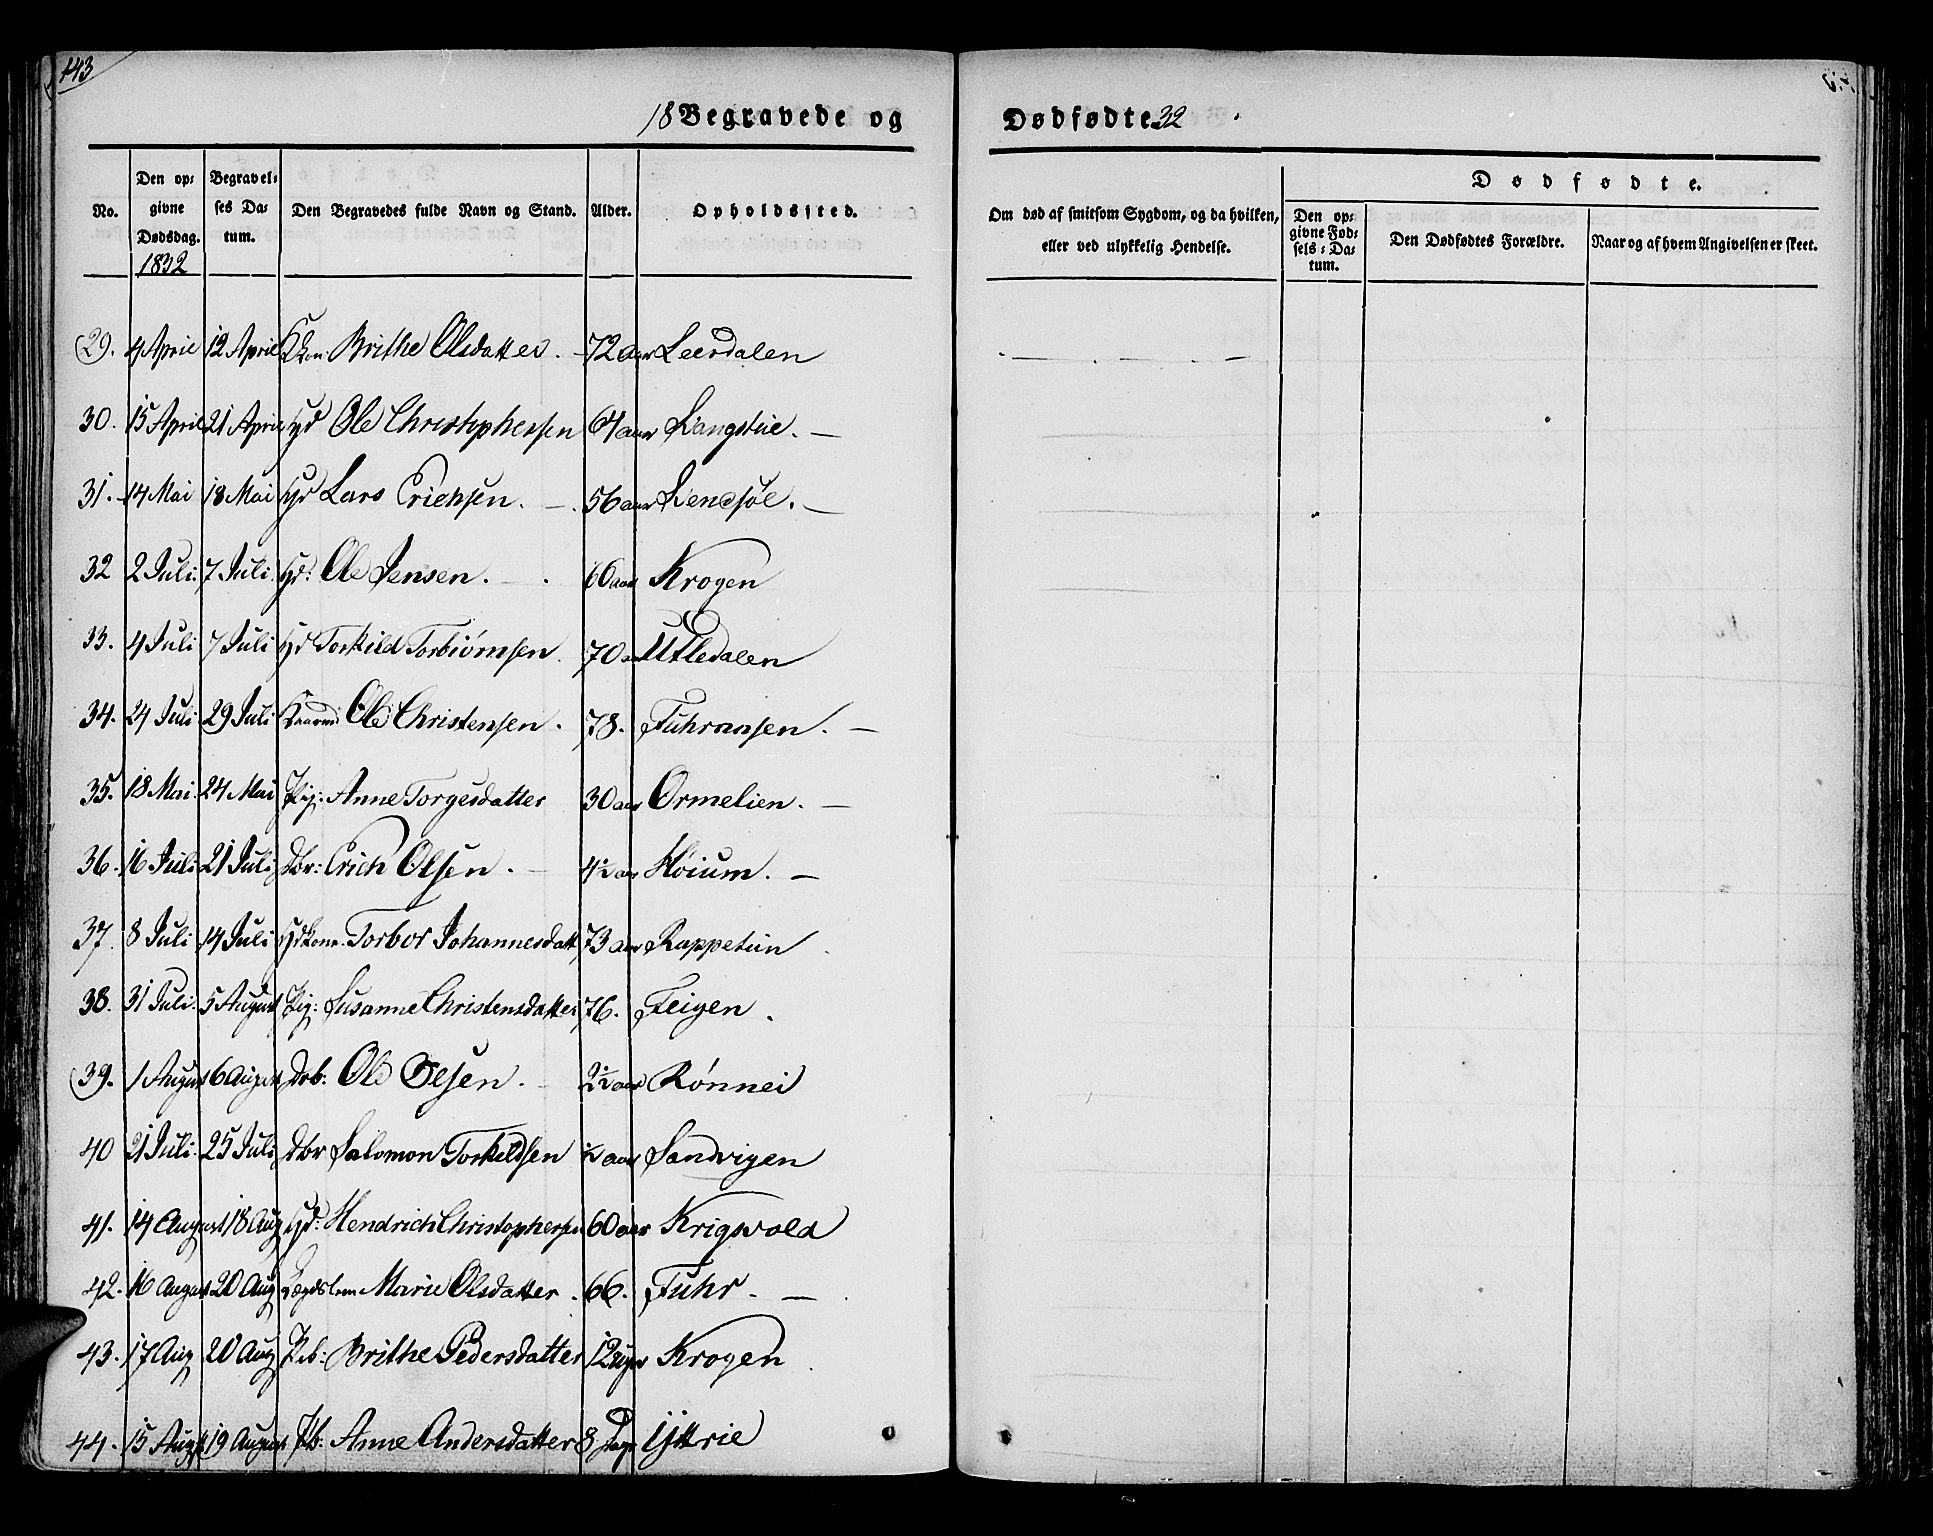 143
18 Begravede og Dødfødte 32
No.
Den op-
givne
Dødsdag.
1832
Begravel-
ses Da-
tum.
Den Begravedes fulde Navn og Stand.
Alder.
Opholdssted.
Om død af smitsom Sygdom, og da hvilken,
eller ved ulykkelig Hendelse.
Dødfødte.
Den op-
givne Fød-
sels-Da-
tum.
Den Dødfødtes Forældre.
Naar og af hvem Angivelsen er skeet.
29. 4 April 12 April Brithe Olsdatter. 72 aar Leerdalen
30. 15 April 21 April Gd Ole Christophersen 64 aar Langstue.
31. 14 Mai 18 Mai Gd Lars Erichsen. 56 aar
32 2 Juli. 7 Juli. Gd: Ole Jensen. 60 aar Krogen
33. 4 Juli 7 Juli Gd Torkild Torbiørnsen 70 Utledalen
34. 24 Juli 29 Juli Ole Christensen. 78. Fuhrnæsen.
35. 18 Mai. 24 Mai Pig: Anne Torgersdatter 30 aar Ormelien.
36. 16 Juli 21 Juli Dbr: Erich Olsen. 4½ aar Høium.
37. 8 Juli 14 Juli Gdkone Torbor Johannesdatt 73 aar Rappetun
38. 31 Juli. 5 August Pig: Susanne Christensdatter 76. Feigen.
39. 1 August 6 August Drb: Ole Olsen. 2½ aar Rønnei
40 21 Juli. 25 Juli Dbr Salomon Torkildsen ½ aar Sandvigen
41. 14 August 18 Aug Gd: Hendrich Christophersen 60 aar Krigsvold
42. 16 August 20 Aug Lægdslem Marie Olsdatter. 66. Fuhr.
43. 17 Aug 20 Aug Pb: Brithe Pedersdatter 12 uger Krogen
44. 15 Aug 19 August Pb: Anne Andersdatter 8 Dage Yttrie